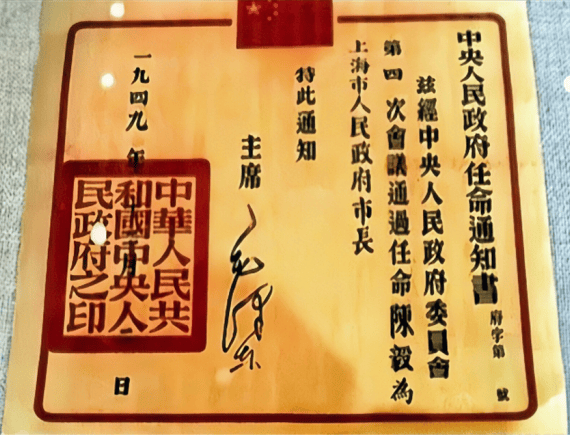 中央人民政府任命通知書
府字第 號
茲經中央人民政府委員會
第四次會議通過任命陳毅為
上海市人民政府市長
特此通知
主席
毛澤東
一九四九年 月 日
中華人民共
和國中央人
民政府之印